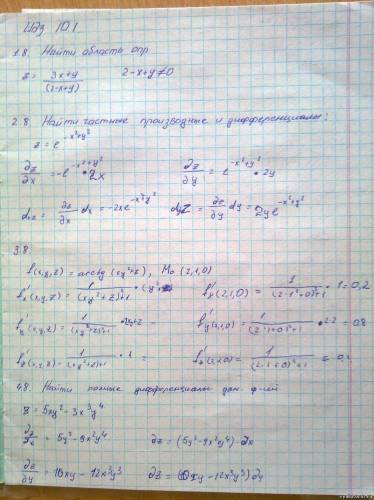 ИДЗ 10.1
1.8. Найти область опр.
z = (3x+y)/(2-x+y) 2-x+y≠0
2.8. Найти частные производные и дифференциалы:
z = e^(-x²+y²)
∂z/∂x = -e^(-x²+y²) · 2x ∂z/∂y = e^(-x²+y²) · 2y
dₓz = ∂z/∂x dx = -2xe^(-x²+y²) d_y z = ∂z/∂y dy = 2ye^(-x²+y²)
3.8.
f(x,y,z) = arctg(xy²+z), M₀(2,1,0)
f'ₓ(x,y,z) = 1/((xy²+z)²+1) · (y² f'ₓ(2,1,0) = 1/((2·1²+0)²+1) · 1 = 0,2
f'_y(x,y,z) = 1/((xy²+z)²+1) · f'_y(2,1,0) = 1/((2·1²+0)²+1) · 2·2 = 0,8
f'_z(x,y,z) = 1/((xy²+z)²+1) · 1 = f'_z(2,1,0) = 1/((2·1+0)²+1) =
4.8. Найти полные дифференциалы дан. ф-ций
z = 5xy² - 3x³y⁴
∂z/∂x = 5y² - 9x²y⁴ ∂z = (5y² - 9x²y⁴)·∂x
∂z/∂y = 10xy - 12x³y³ ∂z = (10xy - 12x³y³)∂y